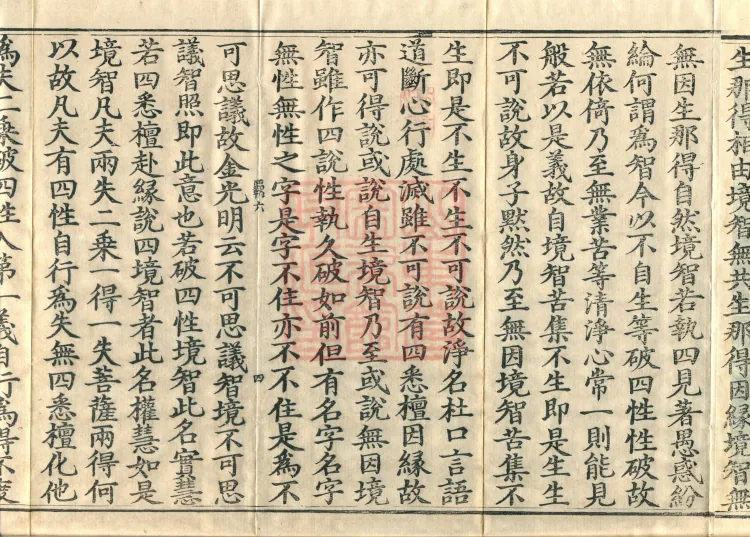 生那得相由境智無共生那得因緣境智無
無因生那得自然境智若執四見著愚惑紛
綸何謂爲智今以不自生等破四性性破故
無依倚乃至無業苦等清淨心常一則能見
般若以是義故自境智苦集不生即是生生
不可說故身子默然乃至無因境智苦集不
生即是不生不生不可說故淨名杜口言語
道斷心行處滅雖不可說有四悉檀因緣故
亦可得說或說自生境智乃至或說無因境
智雖作四說性執久破如前但有名字名字
無性無性之字是字不住亦不不住是爲不
六
四
可思議故金光明云不可思議智境不可思
議智照即此意也若破四性境智此名實慧
若四悉檀赴緣說四境智者此名權慧如是
境智凡夫兩失二乘一得一失菩薩兩得何
以故凡夫有四性自行爲失無四悉檀化他
爲失二乘破四性入第一義自行爲得不度